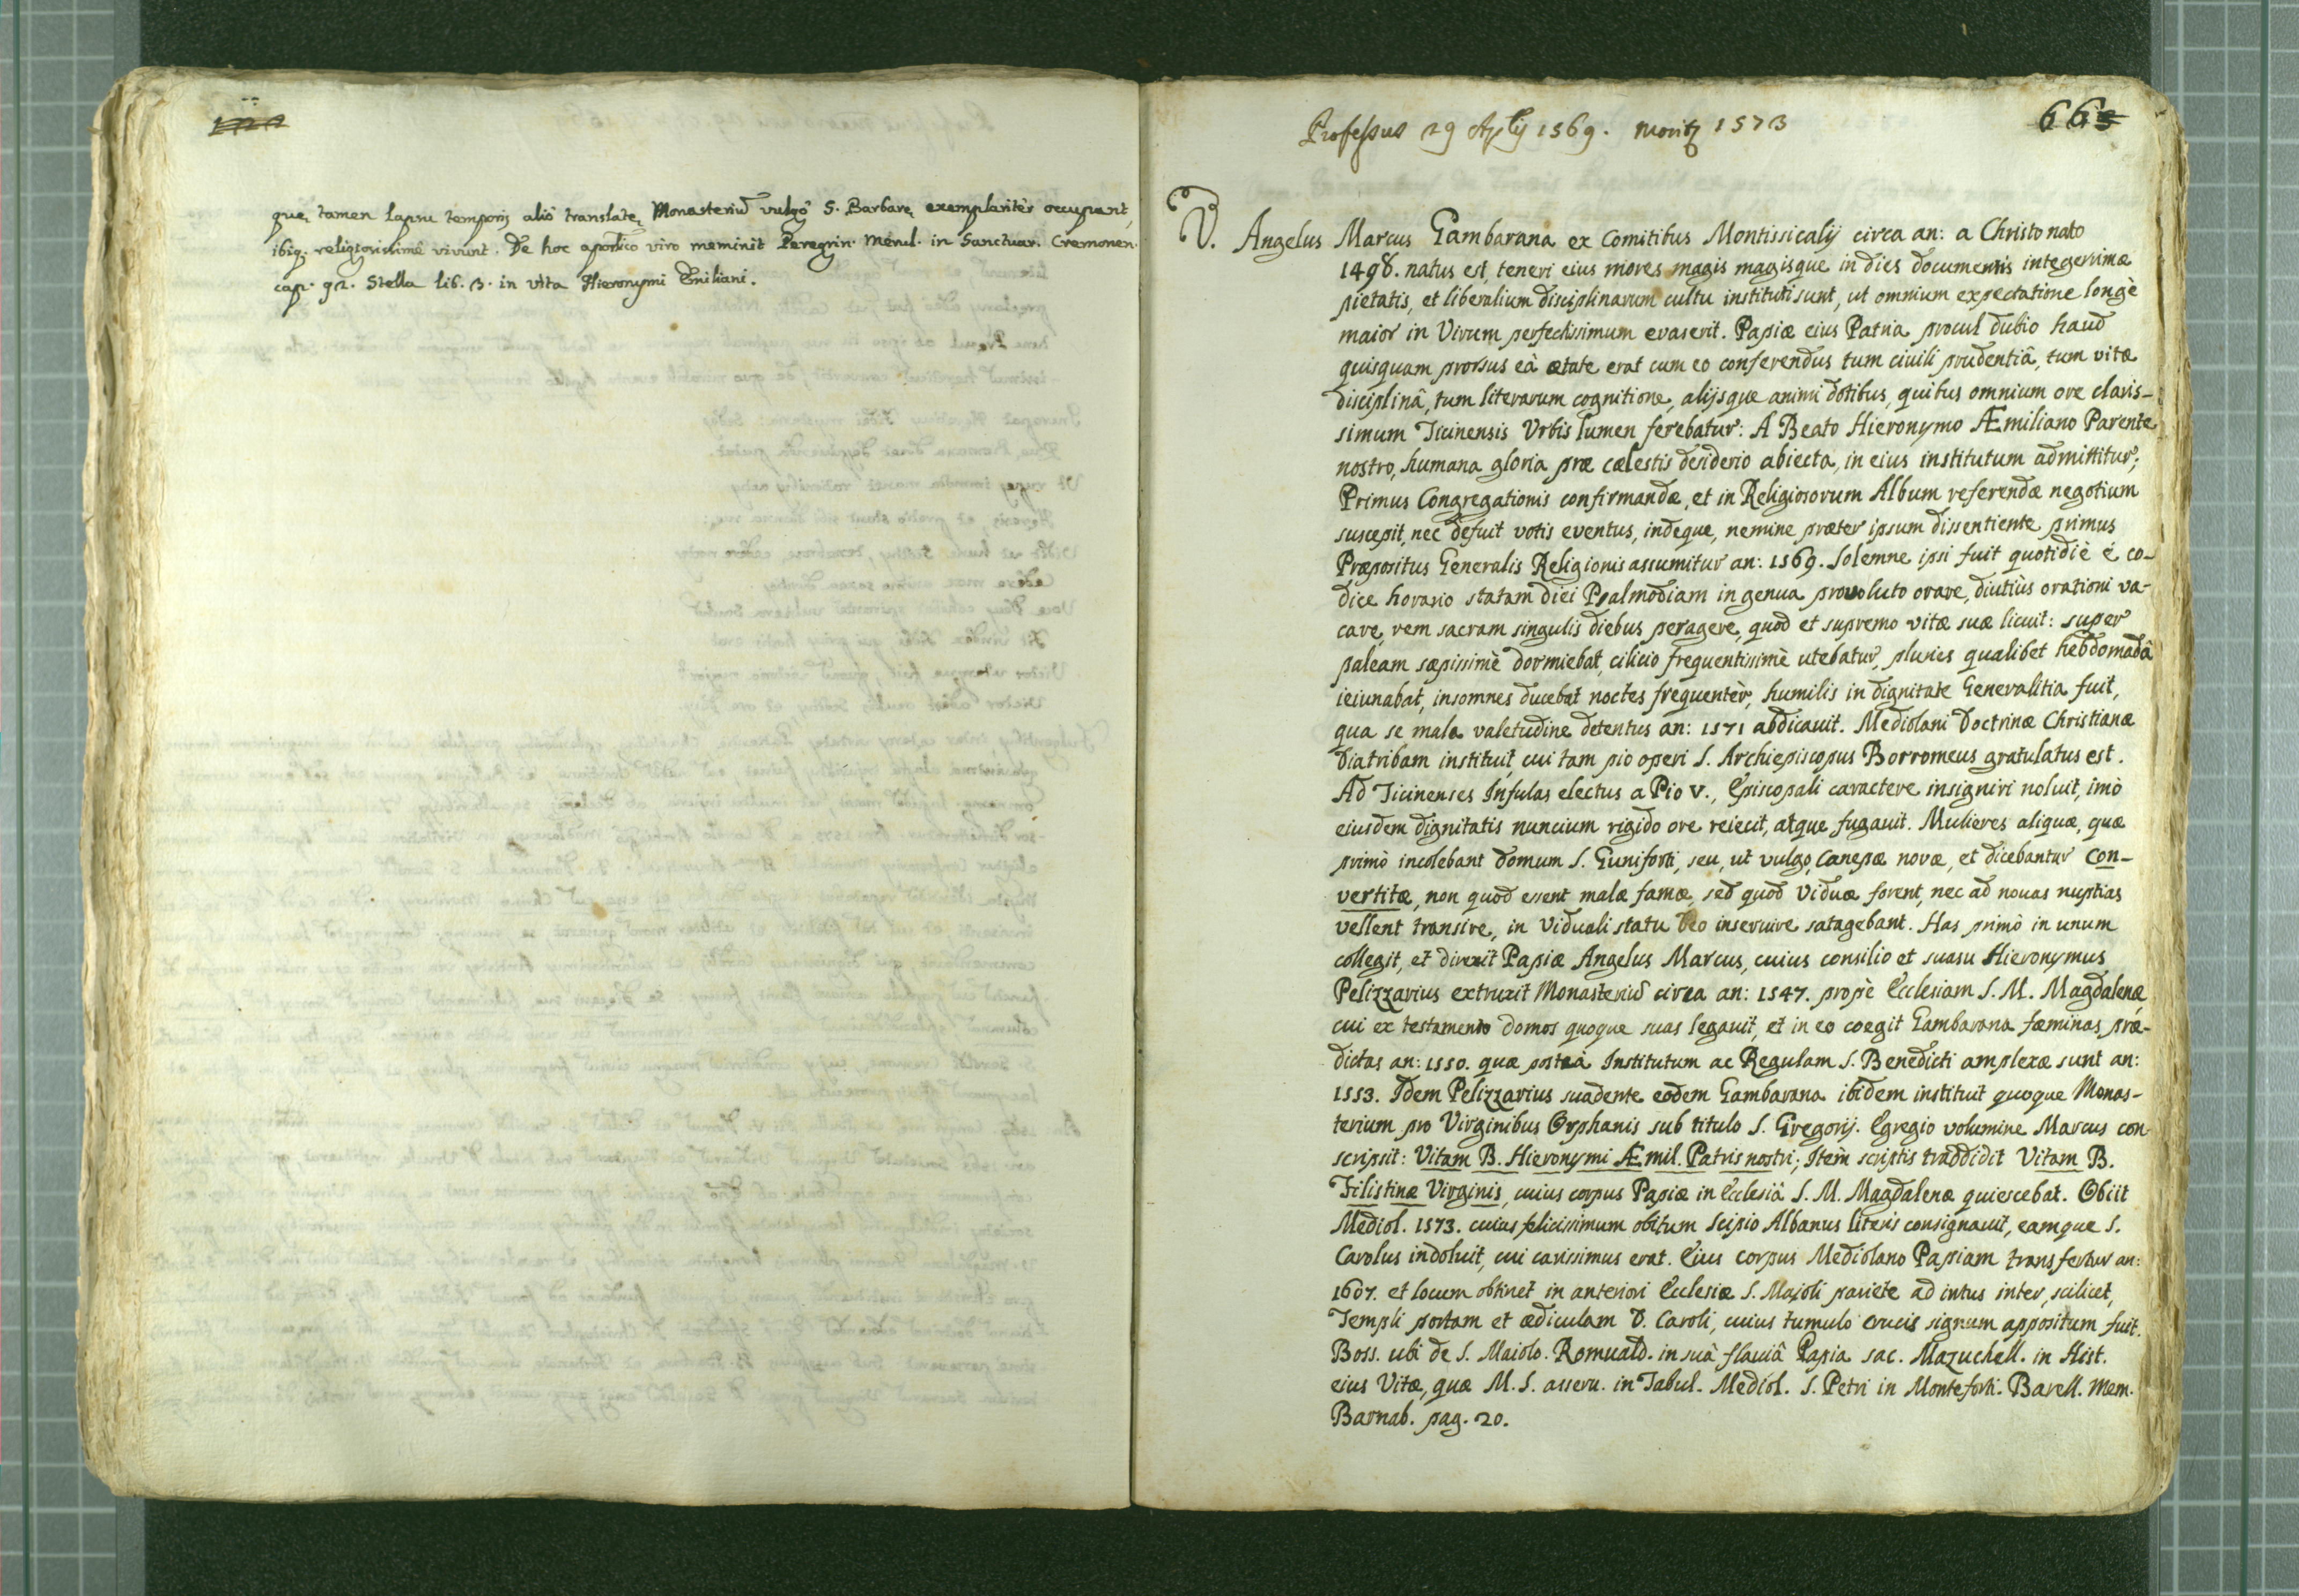 quę tamen lapsu temporis aliò translatę Monasteriũ vulgò S. Barbarę exemplaritèr occupant,
ibiq. religiosissimè vivunt. De hoc aposlico viro meminit Peregrin. Merul. in Sanctuar. Cremonen.
cap. 92. Stella lib. 3. in vita Hieronymi Emiliani.
Professus 29 Aplis 1569. moritʒ 1573
66
V. Angelus Marcus Gambarana ex Comitibus Montissicalij circa an: a Christo nato
1498. natus est, teneri eius mores magis magisque in dies documentis integerrimæ
pietatis, et liberalium disciplinarum cultu instituti sunt, ut omnium expectatione longè
maior in Virum perfectissimum evaserit. Papiæ eius Patria procul dubio haud
quisquam prorsus eâ ætate erat cum eo conferendus tum civili prudentiâ, tum vitæ
disciplinâ, tum literarum cognitione, alijsque animi dotibus, quibus omnium ore claris-
simum Ticinensis Vrbis lumen ferebatur: A Beato Hieronymo Æmiliano Parente
nostro, humana gloria præ cælestis desiderio abiecta, in eius institutum admittitur;
Primus Congregationis confirmandæ, et in Religiosorum Album referendæ negotium
suscepit, nec defuit votis eventus, indeque, nemine præter ipsum dissentiente primus
Præpositus Generalis Religionis assumitur an: 1569. Solemne ipsi fuit quotidiè è co-
dice horario statam diei Psalmodiam in genua provoluto orare, diutiùs orationi va-
care, rem sacram singulis diebus peragere, quod et supremo vitæ suæ licuit: super
paleam sæpissimè dormiebat, cilicio frequentissimè utebatur, pluries qualibet hebdomadâ
ieiunabat, insomnes ducebat noctes frequentèr, humilis in dignitate Generalitia fuit,
qua se mala valetudine detentus an: 1571 abdicauit. Mediolani Doctrinæ Christianæ
Diatribam instituit, cui tam pio operi S. Archiepiscopus Borromeus gratulatus est.
Ad Ticinenses Infulas electus a Pio V., Episcopali caractere insigniri noluit, imò
eiusdem dignitatis nuncium rigido ore reiecit, atque fugauit. Mulieres aliquæ, quæ
primò incolebant domum S. Guniforti, seu, ut vulgo, Canepæ novæ, et dicebantur Con-
vertitæ, non quod essent malæ famæ, sed quod Viduæ forent, nec ad nouas nuptias
vellent transire, in Viduali statu Deo inseruire satagebant. Has primò in unum
collegit, et direxit Papiæ Angelus Marcus, cuius consilio et suasu Hieronymus
Pelizzarius extruxit Monasteriũ circa an: 1547. propè Ecclesiam S. M. Magdalenæ
cui ex testamento domos quoque suas legauit, et in eo coegit Gambarana fæminas præ-
dictas an: 1550. quæ posteà Institutum ac Regulam S. Benedicti amplexæ sunt an:
1553. Idem Pelizzarius suadente eodem Gambarana ibidem instituit quoque Monas-
terium pro Virginibus Orphanis sub titulo S. Gregorij. Egregio volumine Marcus con
scripsit: Vitam B. Hieronymi Æmil. Patris nostri; Item scriptis traddidit Vitam B.
Filistinæ Virginis, cuius corpus Papiæ in Ecclesiâ S. M. Magdalenæ quiescebat. Obiit
Mediol. 1573. cuius felicissimum obitum Scipio Albanus literis consignauit, eamque S.
Carolus indoluit, cui carissimus erat. Eius corpus Mediolano Papiam transfertur an:
1607. et locum obtinet in anteriori Ecclesiæ S. Maioli pariete ad intus inter, scilicet,
Templi portam et ædiculam D. Caroli, cuius tumulo crucis signum appositum fuit.
Boss. ubi de S. Maiolo. Romuald. in suâ flauiâ Papia sac. Mazuchell. in Hist.
eius Vitæ, quæ M. S. asseru. in Tabul. Mediol. S. Petri in Monteforti. Barell. Mem.
Barnab. pag. 20.